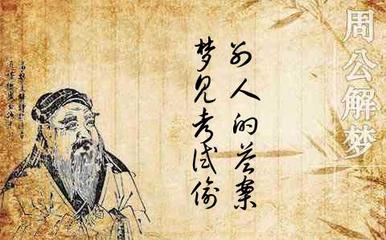 周公解梦
梦见考试偷
别人的答案